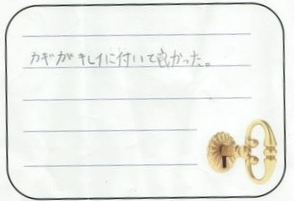 カギがキレイに付いて良かった。